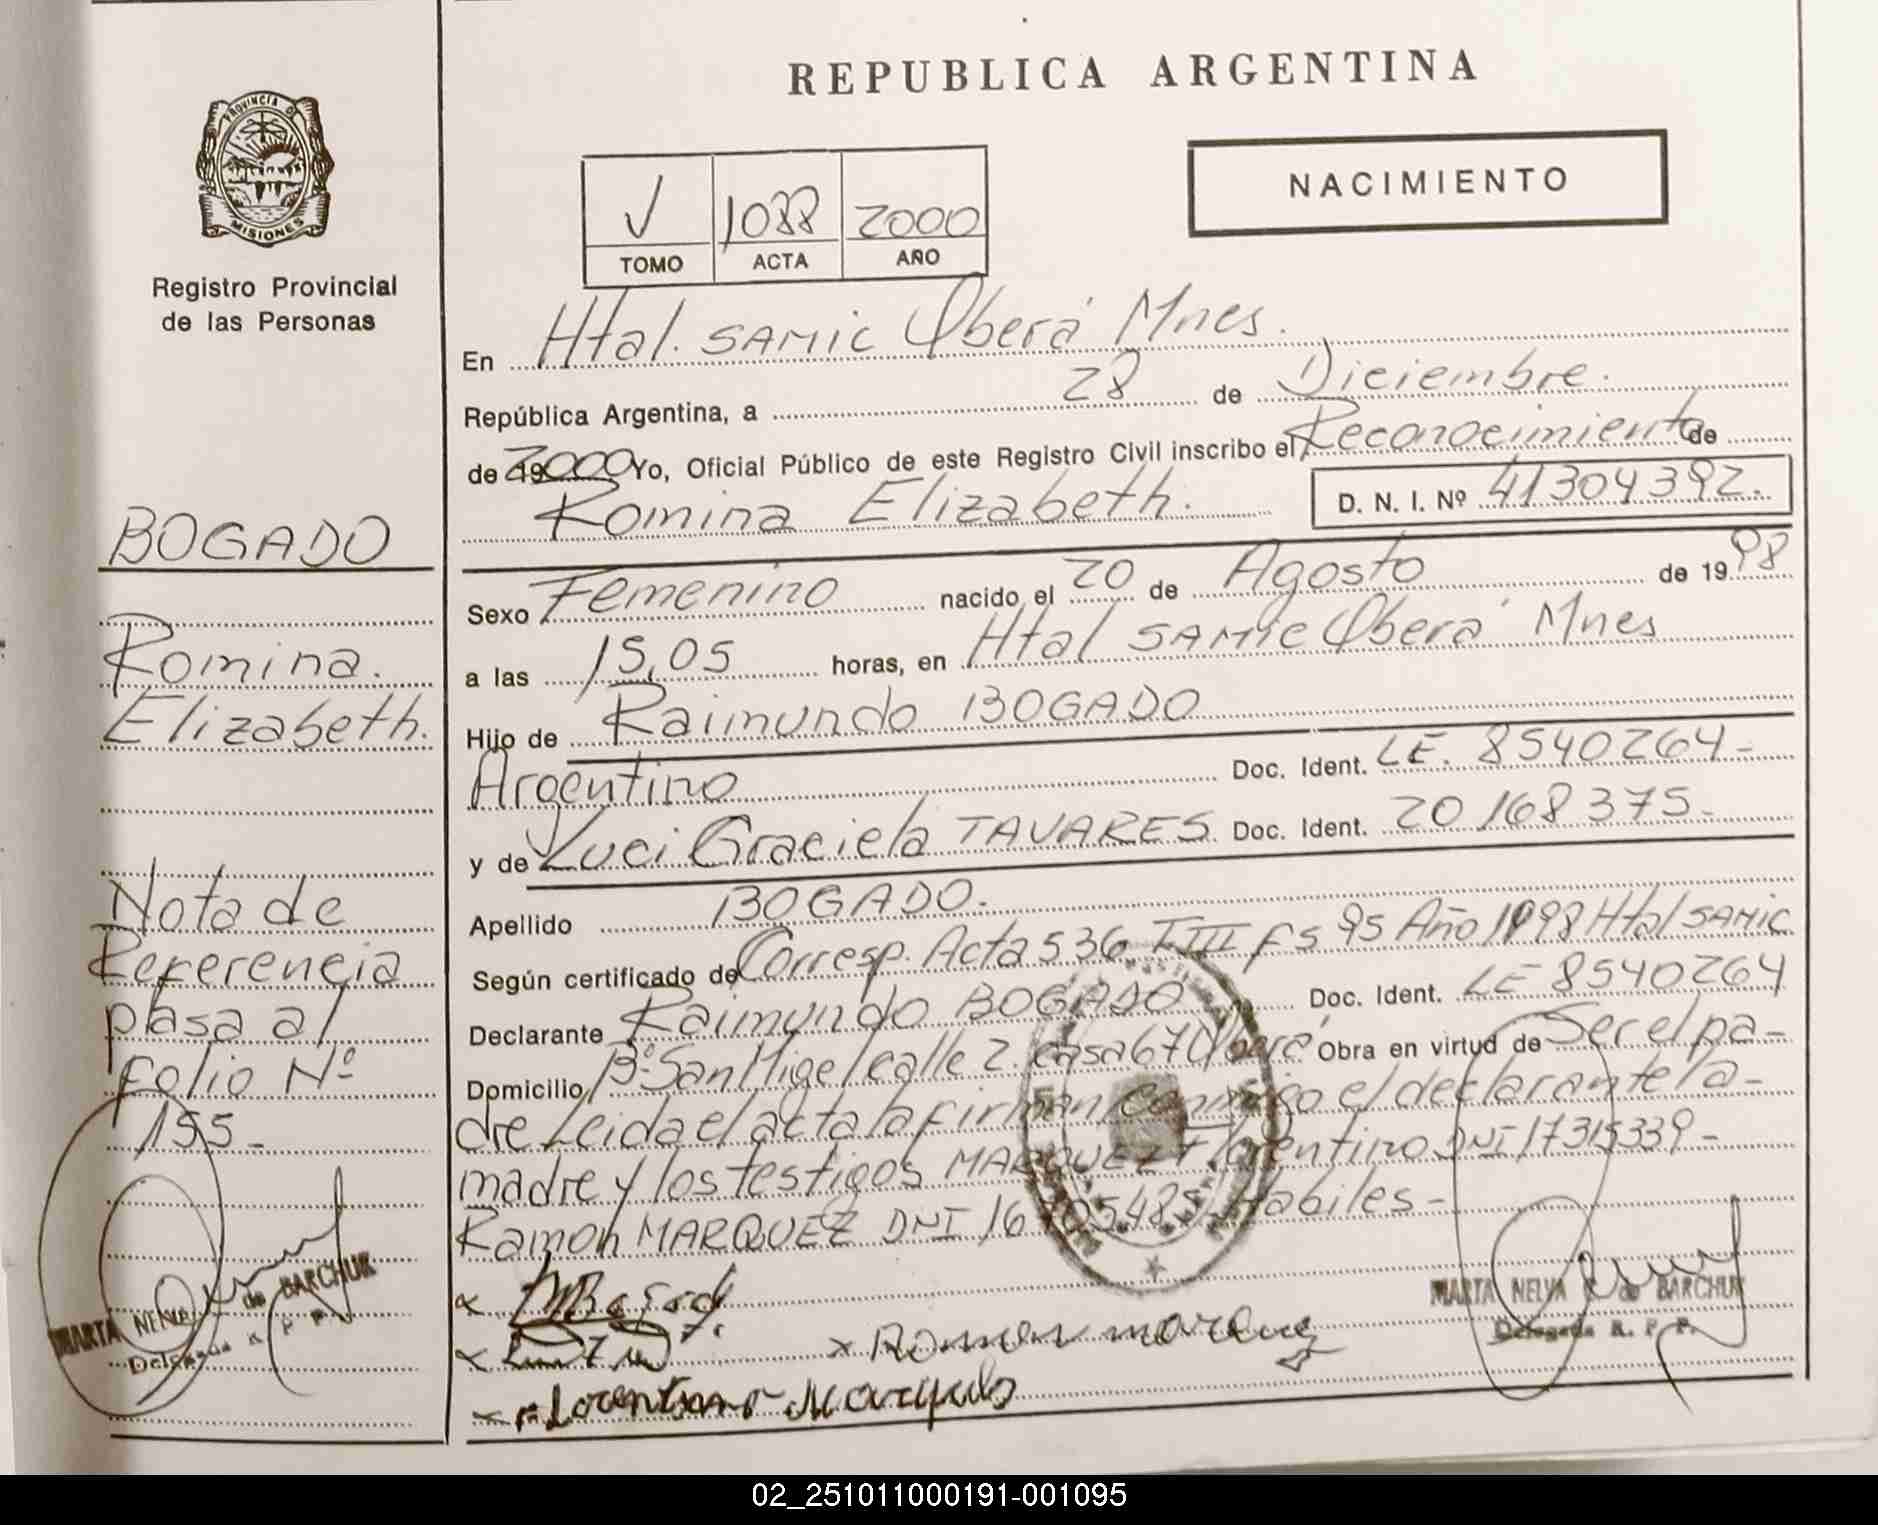 REPUBLICA ARGENTINA
NACIMIENTO
PROVINCIA DE
MISIONES
Registro Provincial
de las Personas
V 1088 2000
TOMO ACTA AÑO
En Htal. SAMIC Oberá Mnes.
República Argentina, a 28 de Diciembre.
de 2000 Yo, Oficial Público de este Registro Civil inscribo el Reconocimiento de
Romina Elizabeth. D. N. I. Nº 41304392.
BOGADO
Romina.
Elizabeth.
Sexo Femenino nacido el 20 de Agosto de 1998
a las 15,05 horas, en Htal SAMIC Oberá Mnes
Hijo de Raimundo BOGADO
Argentino Doc. Ident. LE. 8540264-
y de Luci Graciela TAVARES. Doc. Ident. 20168375-
Apellido BOGADO.
Según certificado de Corresp. Acta 536 TIII Fs 95 Año 1998 Htal SAMIC
Declarante Raimundo BOGADO Doc. Ident. LE 8540264
Domicilio Bº San Migel calle 2. casa 67 Oberá Obra en virtud de Ser el pa-
dre Leida el acta la firman conmigo el declarante la-
madre y los testigos MARQUEZ Florentino DNI 17315339-
Ramon MARQUEZ DNI 16705485 Habiles-
Nota de
Referencia
pasa al
folio Nº
155-
MARTA NELVA de BARCHUK
Delegada R. P. P.
Ramon marquez
MARTA NELVA de BARCHUK
Delegada R. P. P.
02_251011000191-001095